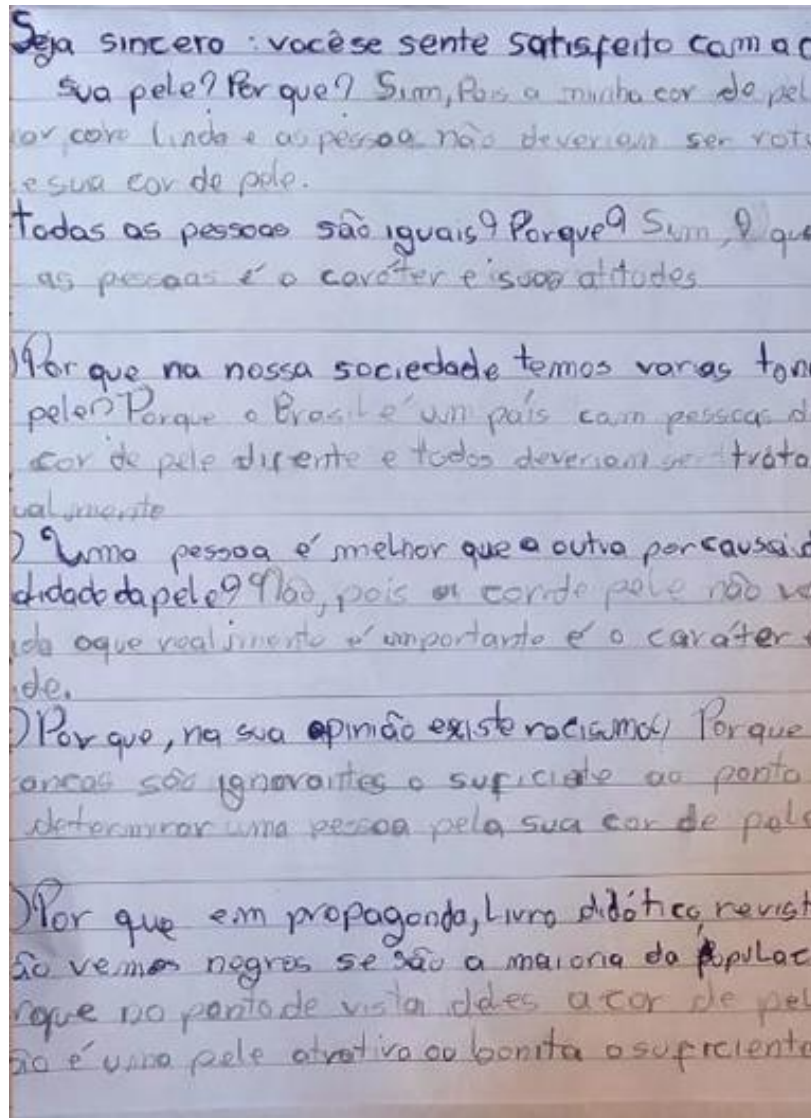 Seja sincero : você se sente satisfeito com a c
sua pele? Por que? Sim, Pois a minha cor de pel
cor linda e as pessoa não deveriam ser rotu
e sua cor de pele.
todas as pessoas são iguais? Porque? Sim, O que
as pessoas é o caráter e suas atitudes
) Por que na nossa sociedade temos varias ton
pele? Porque o Brasil é um país com pessoas d
cor de pele diferente e todos deveriam ser trata
ualmente
) Uma pessoa é melhor que a outra por causa d
didade da pele? Não, pois a cor de pele não va
ada oque realmente é importante é o caráter e
ide.
) Por que, na sua opinião existe racismo? Porque
ancas são ignorantes o suficiete ao ponto
determinar uma pessoa pela sua cor de pele
) Por que em propaganda, Livro didático, revist
ão vemos negros se são a maioria da populac
rque no ponto de vista deles a cor de pel
ão é uma pele atrativa ou bonita o suficiente